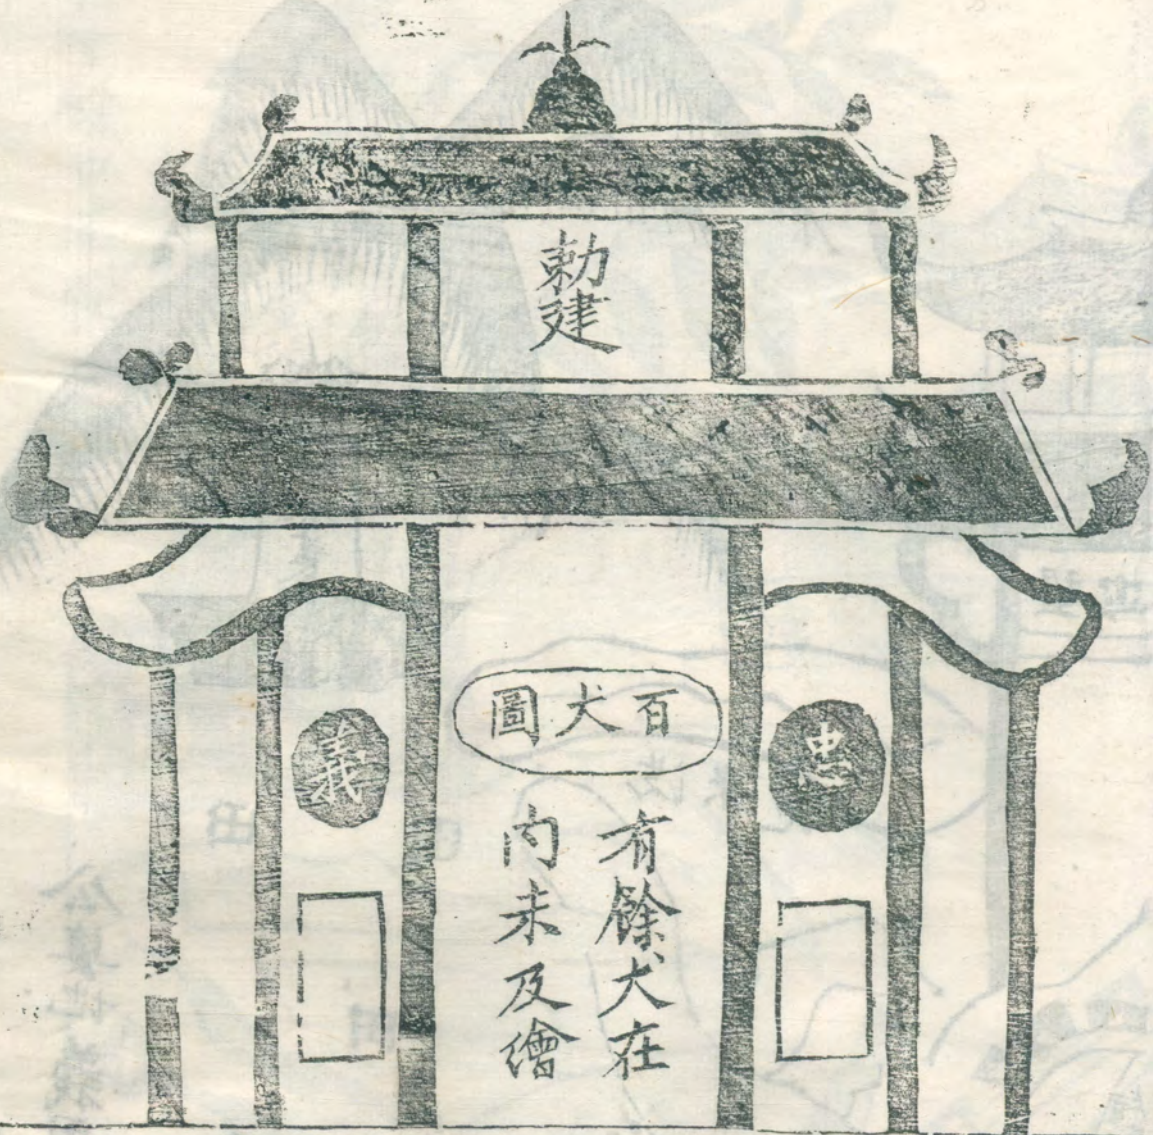 勅建
百犬圖
忠
義
有餘犬在
內未及繪